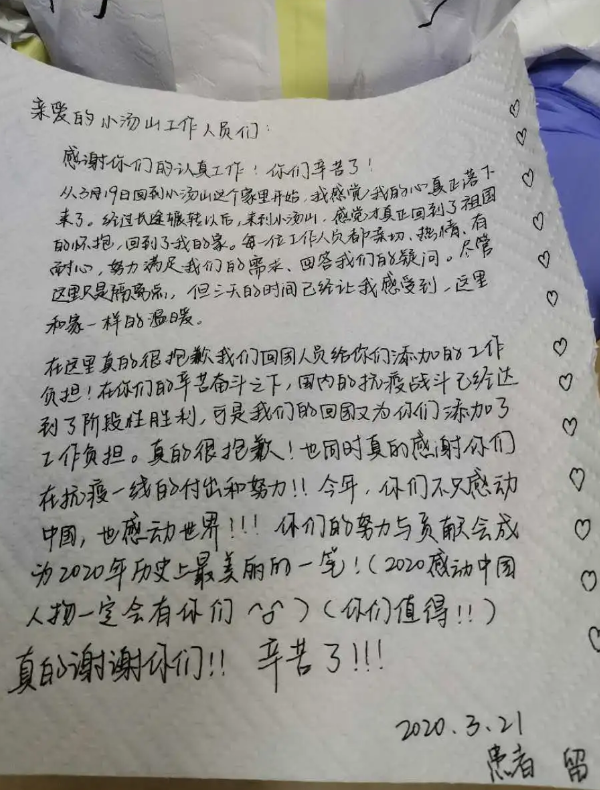 亲爱的小汤山工作人员们:
感谢你们的认真工作!你们辛苦了!
从3月19日回到小汤山这个家里开始,我感觉我的心真正落下
来了。经过长途辗转以后,来到小汤山,感觉才真正回到了祖国
的怀抱,回到了我的家。每一位工作人员都亲切、热情、有
耐心,努力满足我们的需求、回答我们的疑问。尽管
这里只是隔离点,但三天的时间已经让我感受到,这里
和家一样的温暖。
在这里真的很抱歉我们回国人员给你们添加的工作
负担!在你们的辛苦奋斗之下,国内的抗疫战斗已经达
到了阶段性胜利,可是我们的回国又为你们添加了
工作负担。真的很抱歉!也同时真的感谢你们
在抗疫一线的付出和努力!!今年,你们不只感动
中国,也感动世界!!!你们的努力与贡献会成
为2020年历史上最美丽的一笔!(2020感动中国
人物一定会有你们)(你们值得!!)
真的谢谢你们!!辛苦了!!!
2020.3.21
患者 留